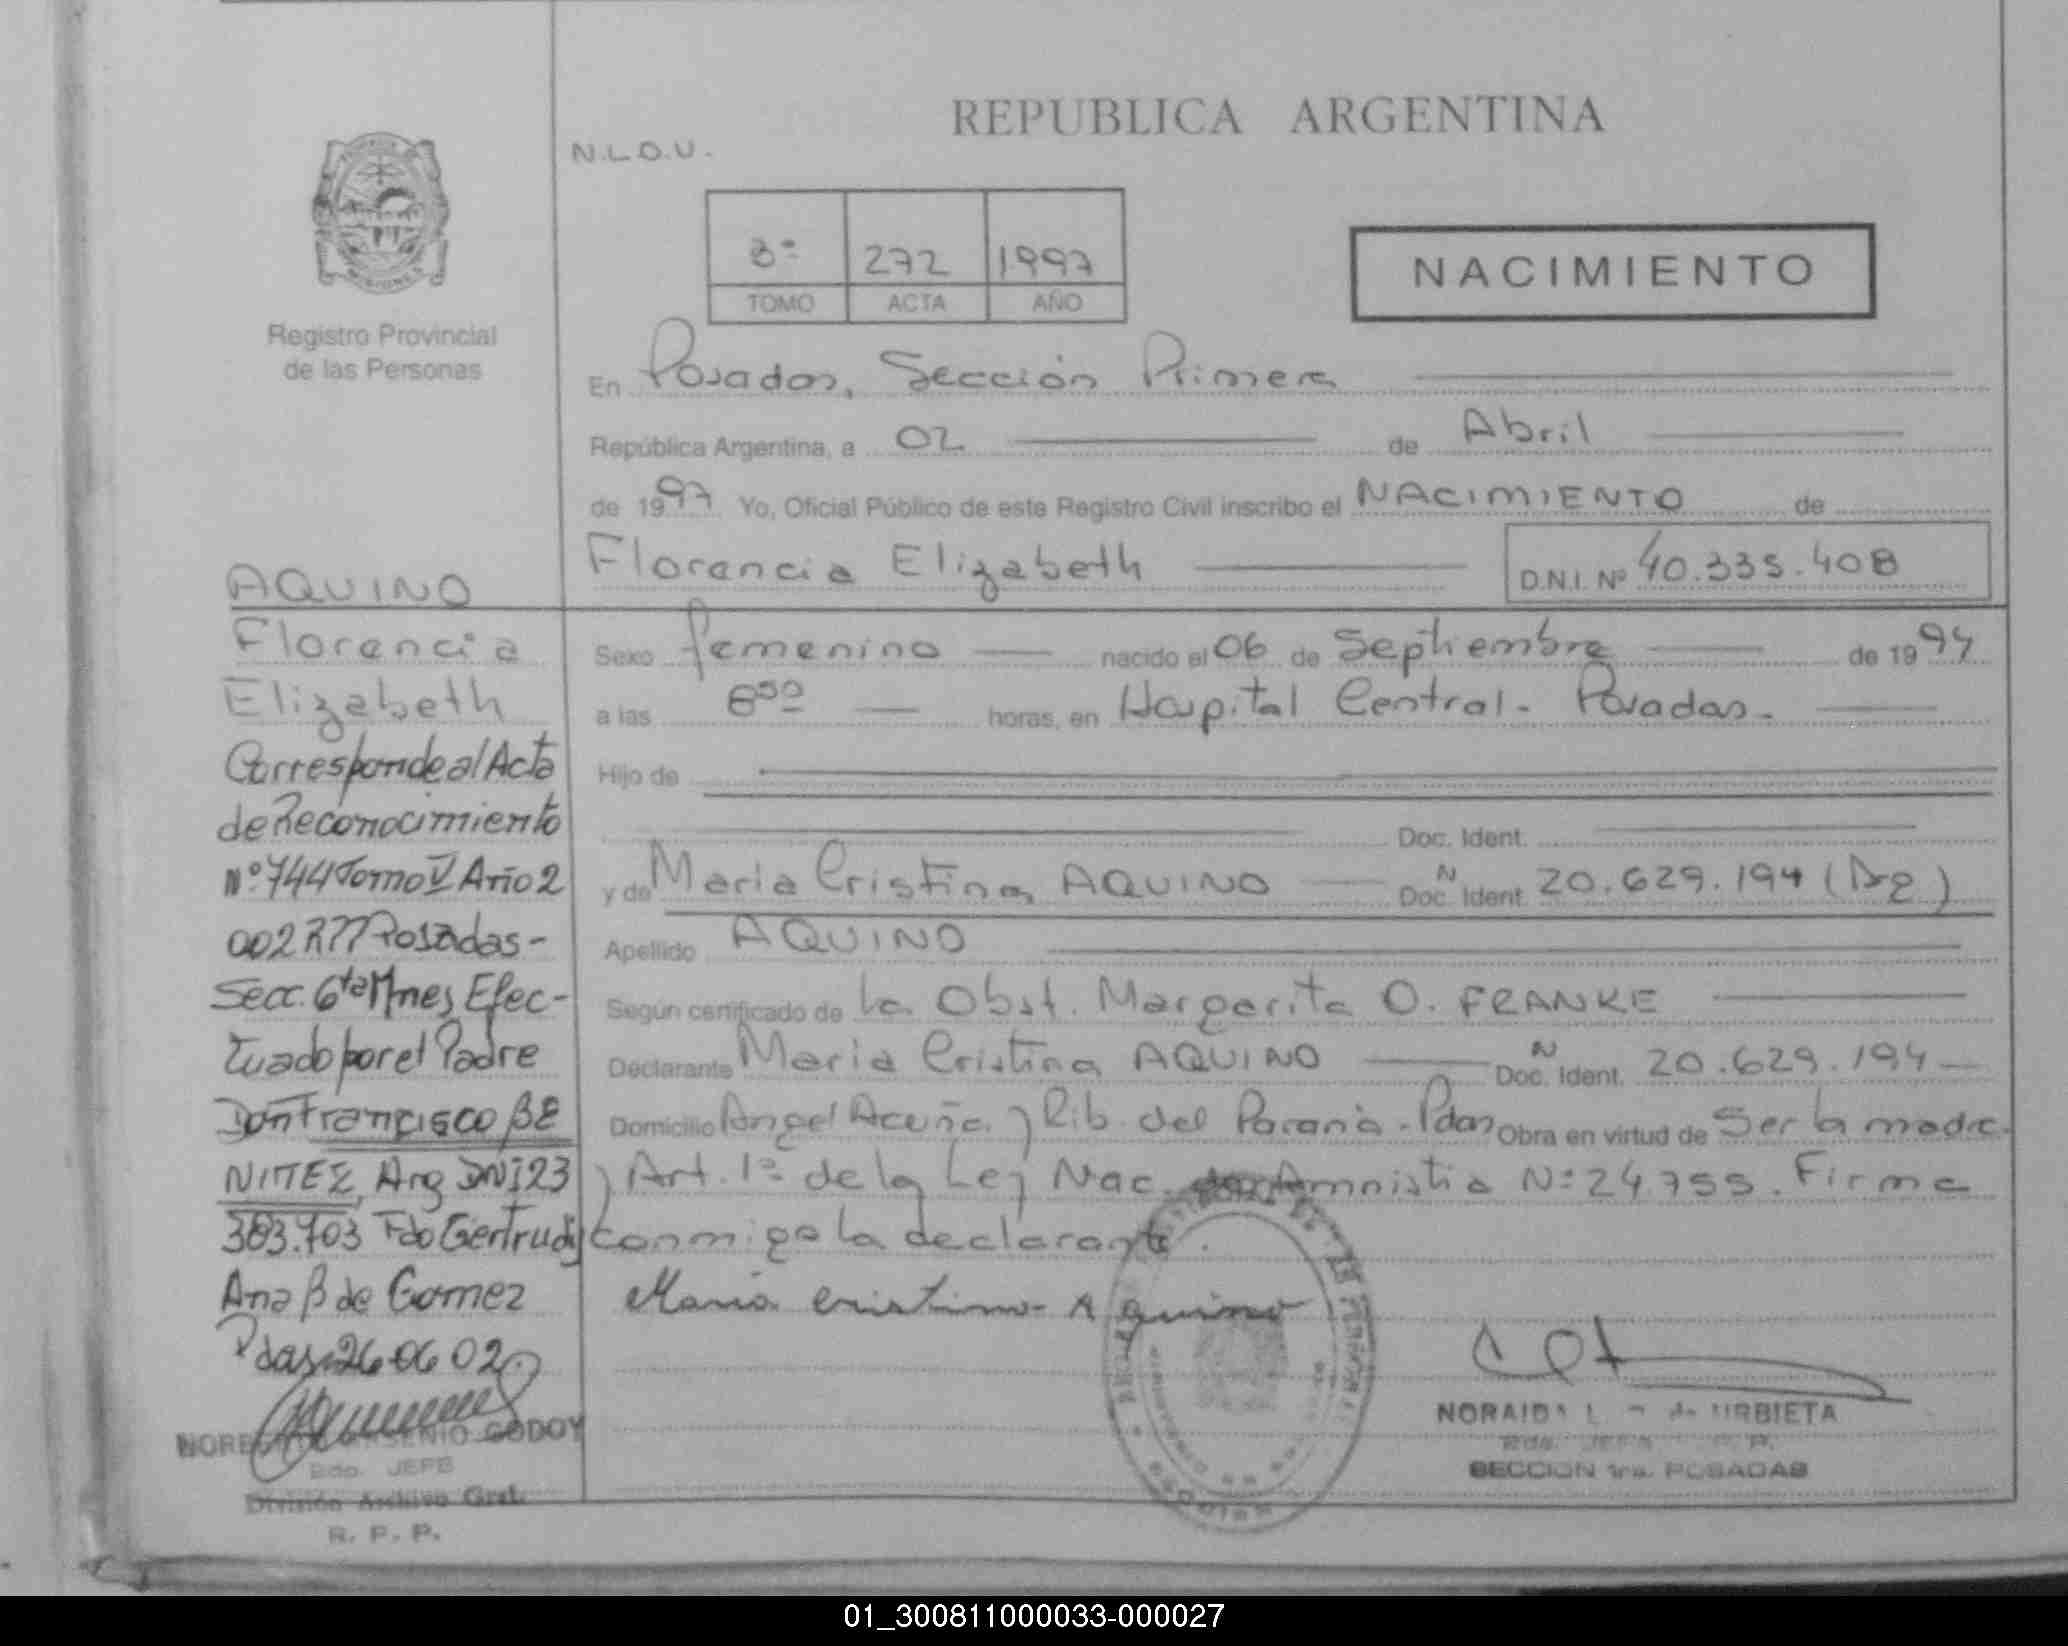 REPUBLICA ARGENTINA
N.L.O.U.
3º 272 1997
TOMO ACTA AÑO
NACIMIENTO
Registro Provincial
de las Personas
En Posadas, Sección Primera
República Argentina, a 02 de Abril
de 1997 Yo, Oficial Público de este Registro Civil inscribo el NACIMIENTO de
Florencia Elizabeth D.N.I. Nº 40.335.408
Sexo femenino nacido el 06 de Septiembre de 1994
a las 6⁵⁰ horas, en Hospital Central - Posadas -
Hijo de
Doc. Ident.
y de Maria Cristina AQUINO Doc. N Ident. 20.629.194 (Ar)
Apellido AQUINO
Según certificado de la Obst. Margarita O. FRANKE
Declarante Maria Cristina AQUINO Doc. N Ident. 20.629.194
Domicilio Angel Acuña y Rib. del Paraná - Pdas Obra en virtud de Ser la madre
y Art. 1º de la Ley Nac. Amnistia Nº 24.755. Firma
conmigo la declarante.
Maria Cristina Aquino
NORAIDA de URBIETA
SECCION 1ra. POSADAS
AQUINO
Florencia
Elizabeth
Corresponde al Acta
de Reconocimiento
Nº 744 Tomo V Año 2
002 Posadas -
Secc. 6ta Mnes, Efec-
tuado por el Padre
Don Francisco BE
NITEZ, Arg DNI 23
383.703 Fdo Gertrudis
Ana B de Gomez
Pdas 26 06 02
GODOY
Bdo. JEFE
División Archivo Gral.
R. P. P.
01_300811000033-000027